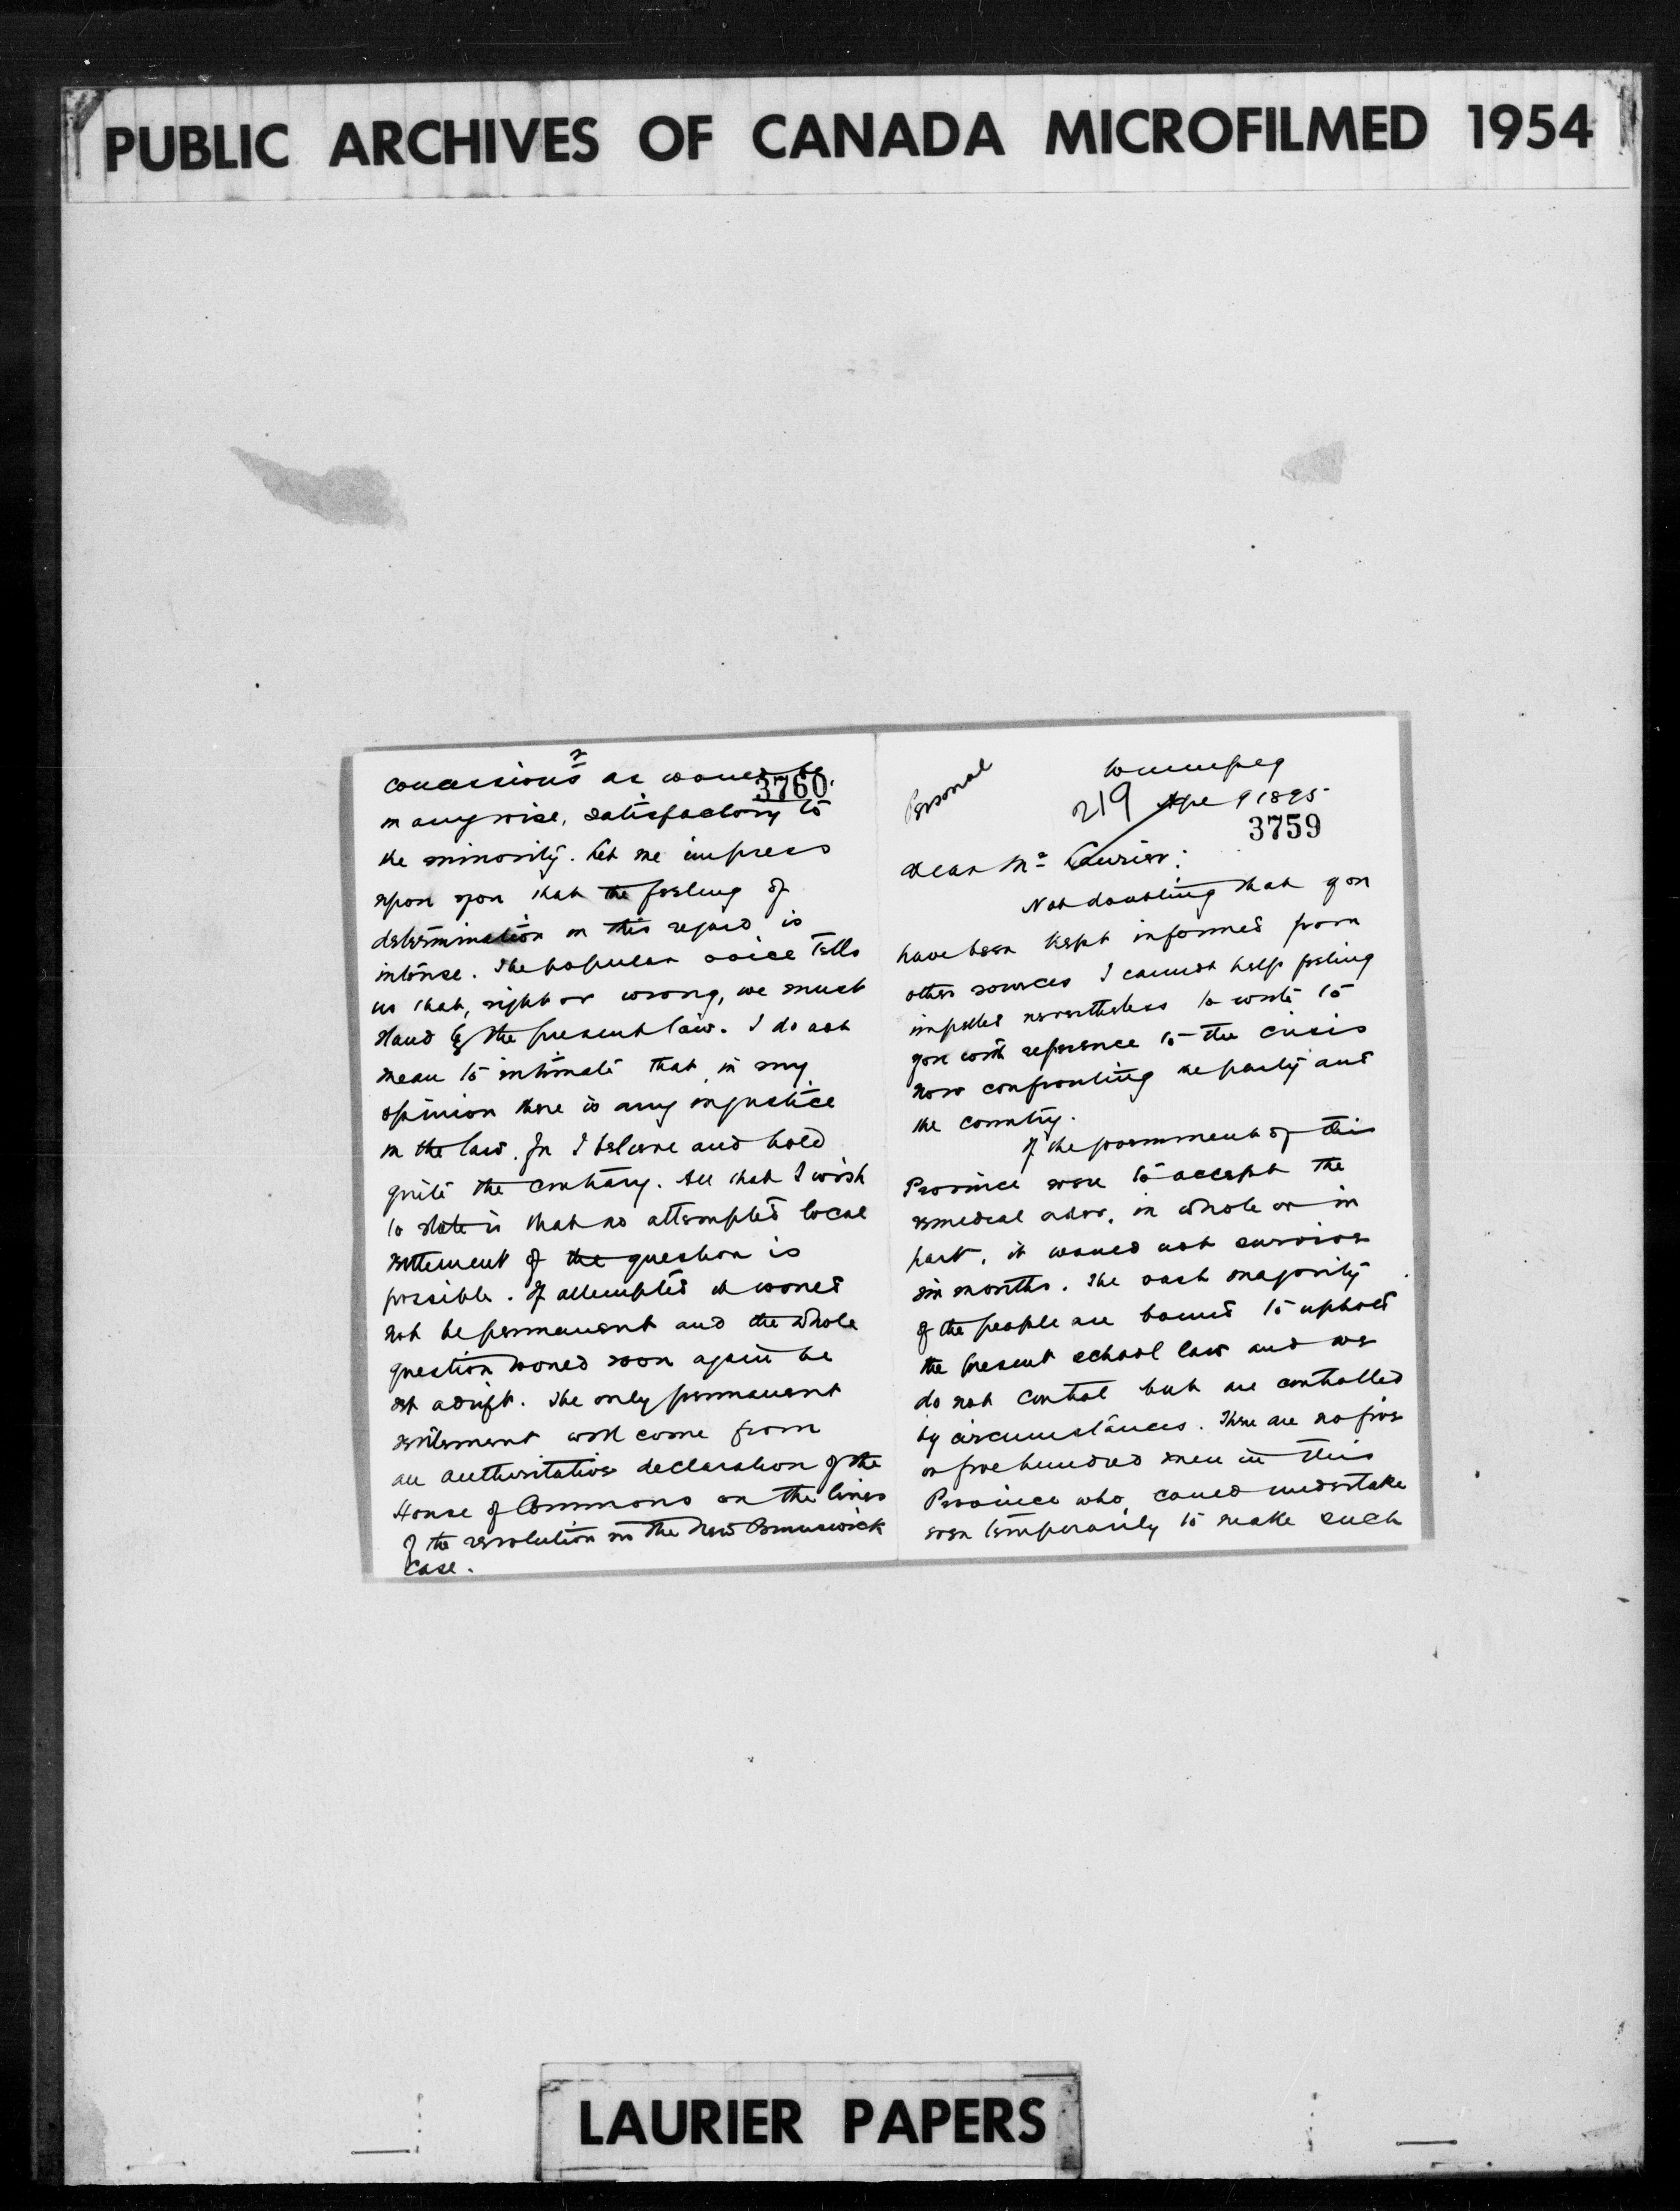 PUBLIC ARCHIVES OF CANADA MICROFILMED 1954
Personal
Winnipeg
219 Apl 9 1895
3759
Dear Mr Laurier:
Not doubting that you
have been kept informed from
other sources I cannot help feeling
impelled nevertheless to write to
you with reference to the crisis
now confronting the party and
the country.
If the government of this
Province were to accept the
remedial order, in whole or in
part, it would not survive
six months. The vast majority
of the people are bound to uphold
the present school law and we
do not control but are controlled
by circumstances. There are no five
or five hundred men in this
Province who could undertake
even temporarily to make such
2
concessions as would be
3760
in anywise, satisfactory to
the minority. Let me impress
upon you that the feeling of
determination in this regard is
intense. The popular voice tells
us that, right or wrong, we must
stand by the present law. I do not
mean to intimate that in my
opinion there is any injustice
in the law. For I believe and hold
quite the contrary. All that I wish
to state is that no attempted local
settlement of the question is
possible. If attempted it would
not be permanent and the whole
question would soon again be
set adrift. The only permanent
settlement will come from
an authoritative declaration of the
House of Commons on the lines
of the resolution in the New Brunswick
case.
LAURIER PAPERS